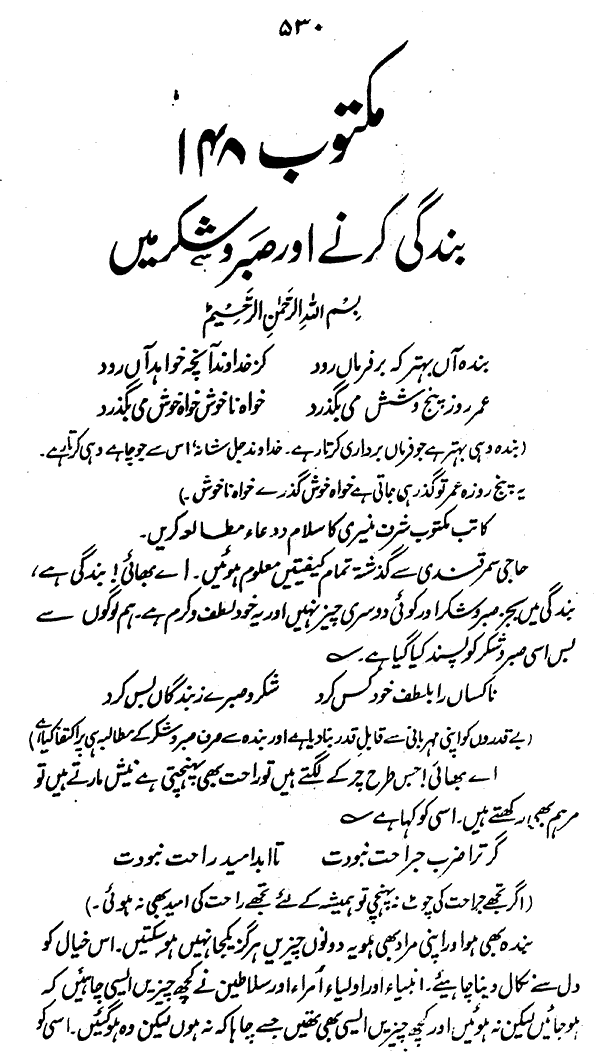 ۵۳۰
مکتوب ۱۴۸
بندگی کرنے اور صبر و شکر میں
بِسْمِ اللهِ الرَّحْمٰنِ الرَّحِيْمِ
بندہ آں بہتر کہ بر فرماں رود کز خداوند آنچہ خواہد آں رود
عمر روز پنج و شش می بگذرد خواہ ناخوش خواہ خوش می بگذرد
(بندہ وہی بہتر ہے جو فرماں برداری کرتا رہے۔ خداوند جل شانہٗ اس سے جو چاہے وہی کرتا ہے۔
یہ پنج روزہ عمر تو گذر ہی جاتی ہے خواہ خوش گذرے خواہ ناخوش۔)
کاتب مکتوب شرف منیری کا سلام و دعاء مطالعہ کریں۔
حاجی سمرقندی سے گذشتہ تمام کیفیتیں معلوم ہوئیں۔ اے بھائی! بندگی ہے،
بندگی میں بجز صبر و شکر اور کوئی دوسری چیز نہیں اور یہ خود لطف و کرم ہے۔ ہم لوگوں سے
بس اسی صبر و شکر کو پسند کیا گیا ہے۔ ؎
ناکساں را بلطف خود کس کرد شکر و صبرے ز بندگاں بس کرد
(بے قدروں کو اپنی مہربانی سے قابل قدر بنا دیا ہے اور بندہ سے صرف صبر و شکر کے مطالبہ ہی پر اکتفا کیا ہے)
اے بھائی! جس طرح چرکے لگتے ہیں تو راحت بھی پہنچتی ہے نیش مارتے ہیں تو
مرہم بھی رکھتے ہیں۔ اسی کو کہا ہے ؎
گر ترا ضرب جراحت نبودت تا ابد امید راحت نبودت
(اگر تجھے جراحت کی چوٹ نہ پہنچی تو ہمیشہ کے لئے تجھے راحت کی امید بھی نہ ہوئی۔)
بندہ بھی ہو اور اپنی مراد بھی ہو یہ دونوں چیزیں ہرگز یکجا نہیں ہو سکتیں۔ اس خیال کو
دل سے نکال دینا چاہیئے۔ انبیاء اور اولیاء اُمراء اور سلاطین نے کچھ چیزیں ایسی چاہیں کہ
ہو جائیں لیکن نہ ہوئیں اور کچھ چیزیں ایسی بھی تھیں جسے چاہا کہ نہ ہوں لیکن وہ ہو گئیں۔ اسی کو